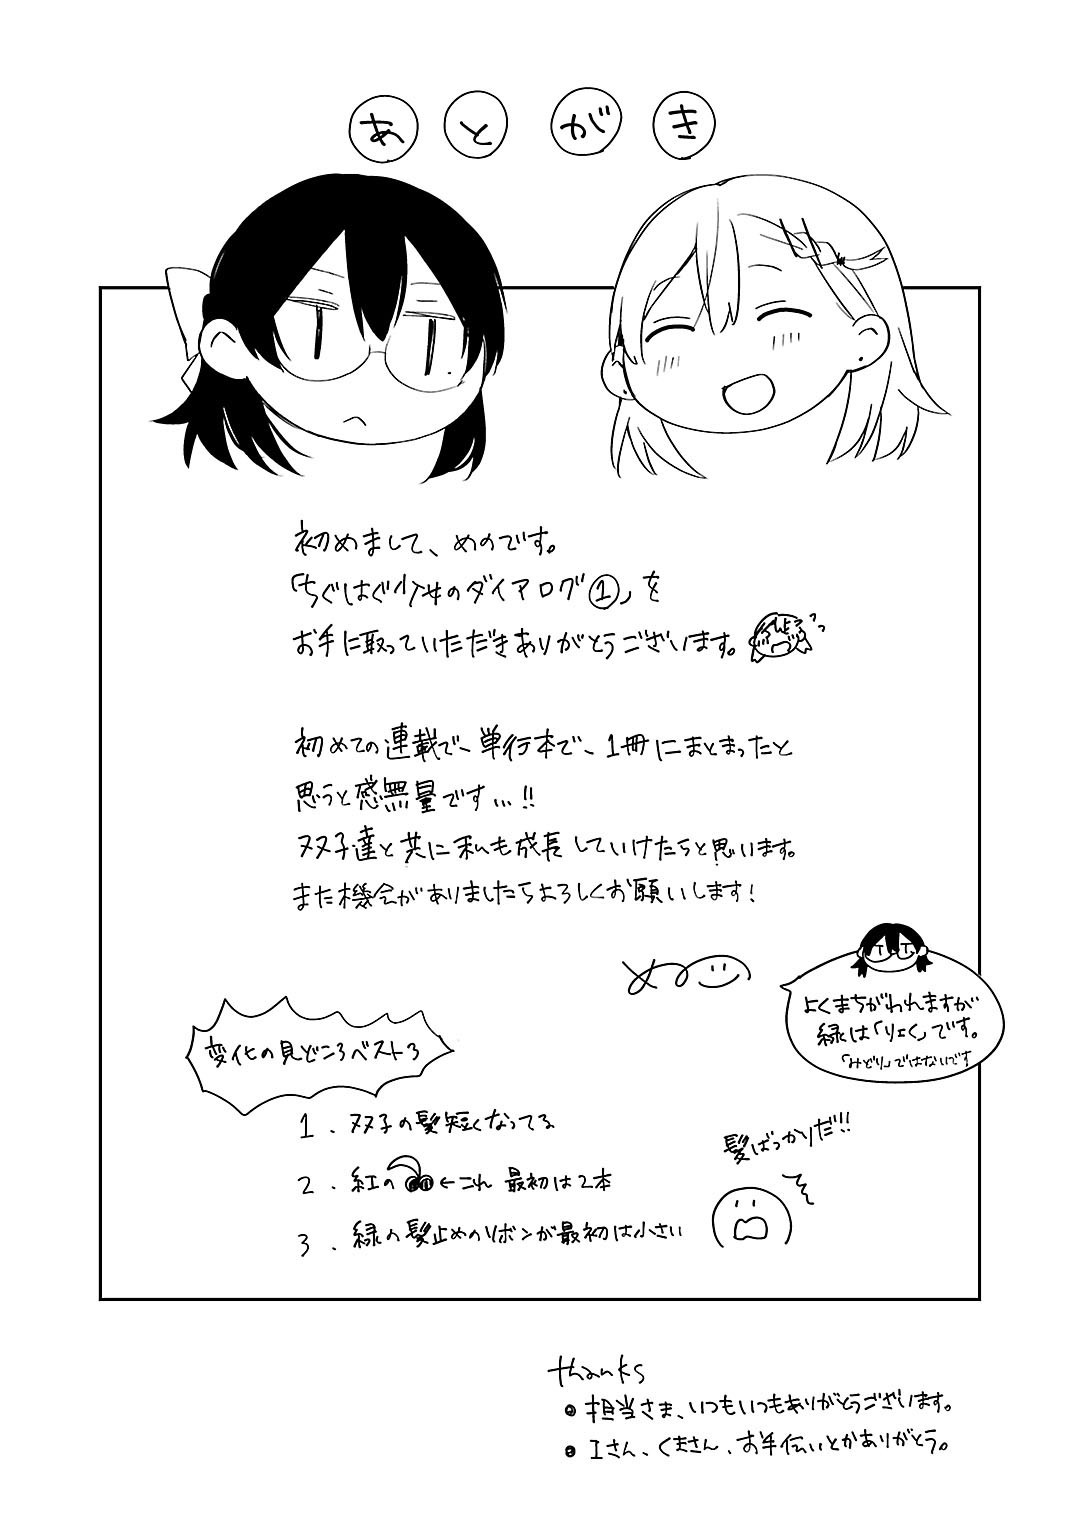 あとがき
初めまして、めのです。
「ちぐはぐ少女のダイアログ①」を
お手に取っていただきありがとうございます。
初めての連載で、単行本で、1冊にまとまったと
思うと感無量です…!!
双子達と共に私も成長していけたらと思います。
また機会がありましたらよろしくお願いします!
めの
よくまちがわれますが
緑は「りょく」です。
「みどり」ではないです
変化の見どころベスト3
1. 双子の髪短くなってる
2. 紅の ←これ 最初は2本
3. 緑の髪止めのリボンが最初は小さい
髪ばっかりだ!!
thanks
●担当さま、いつもいつもありがとうございます。
●Iさん、くまさん、お手伝いとかありがとう。